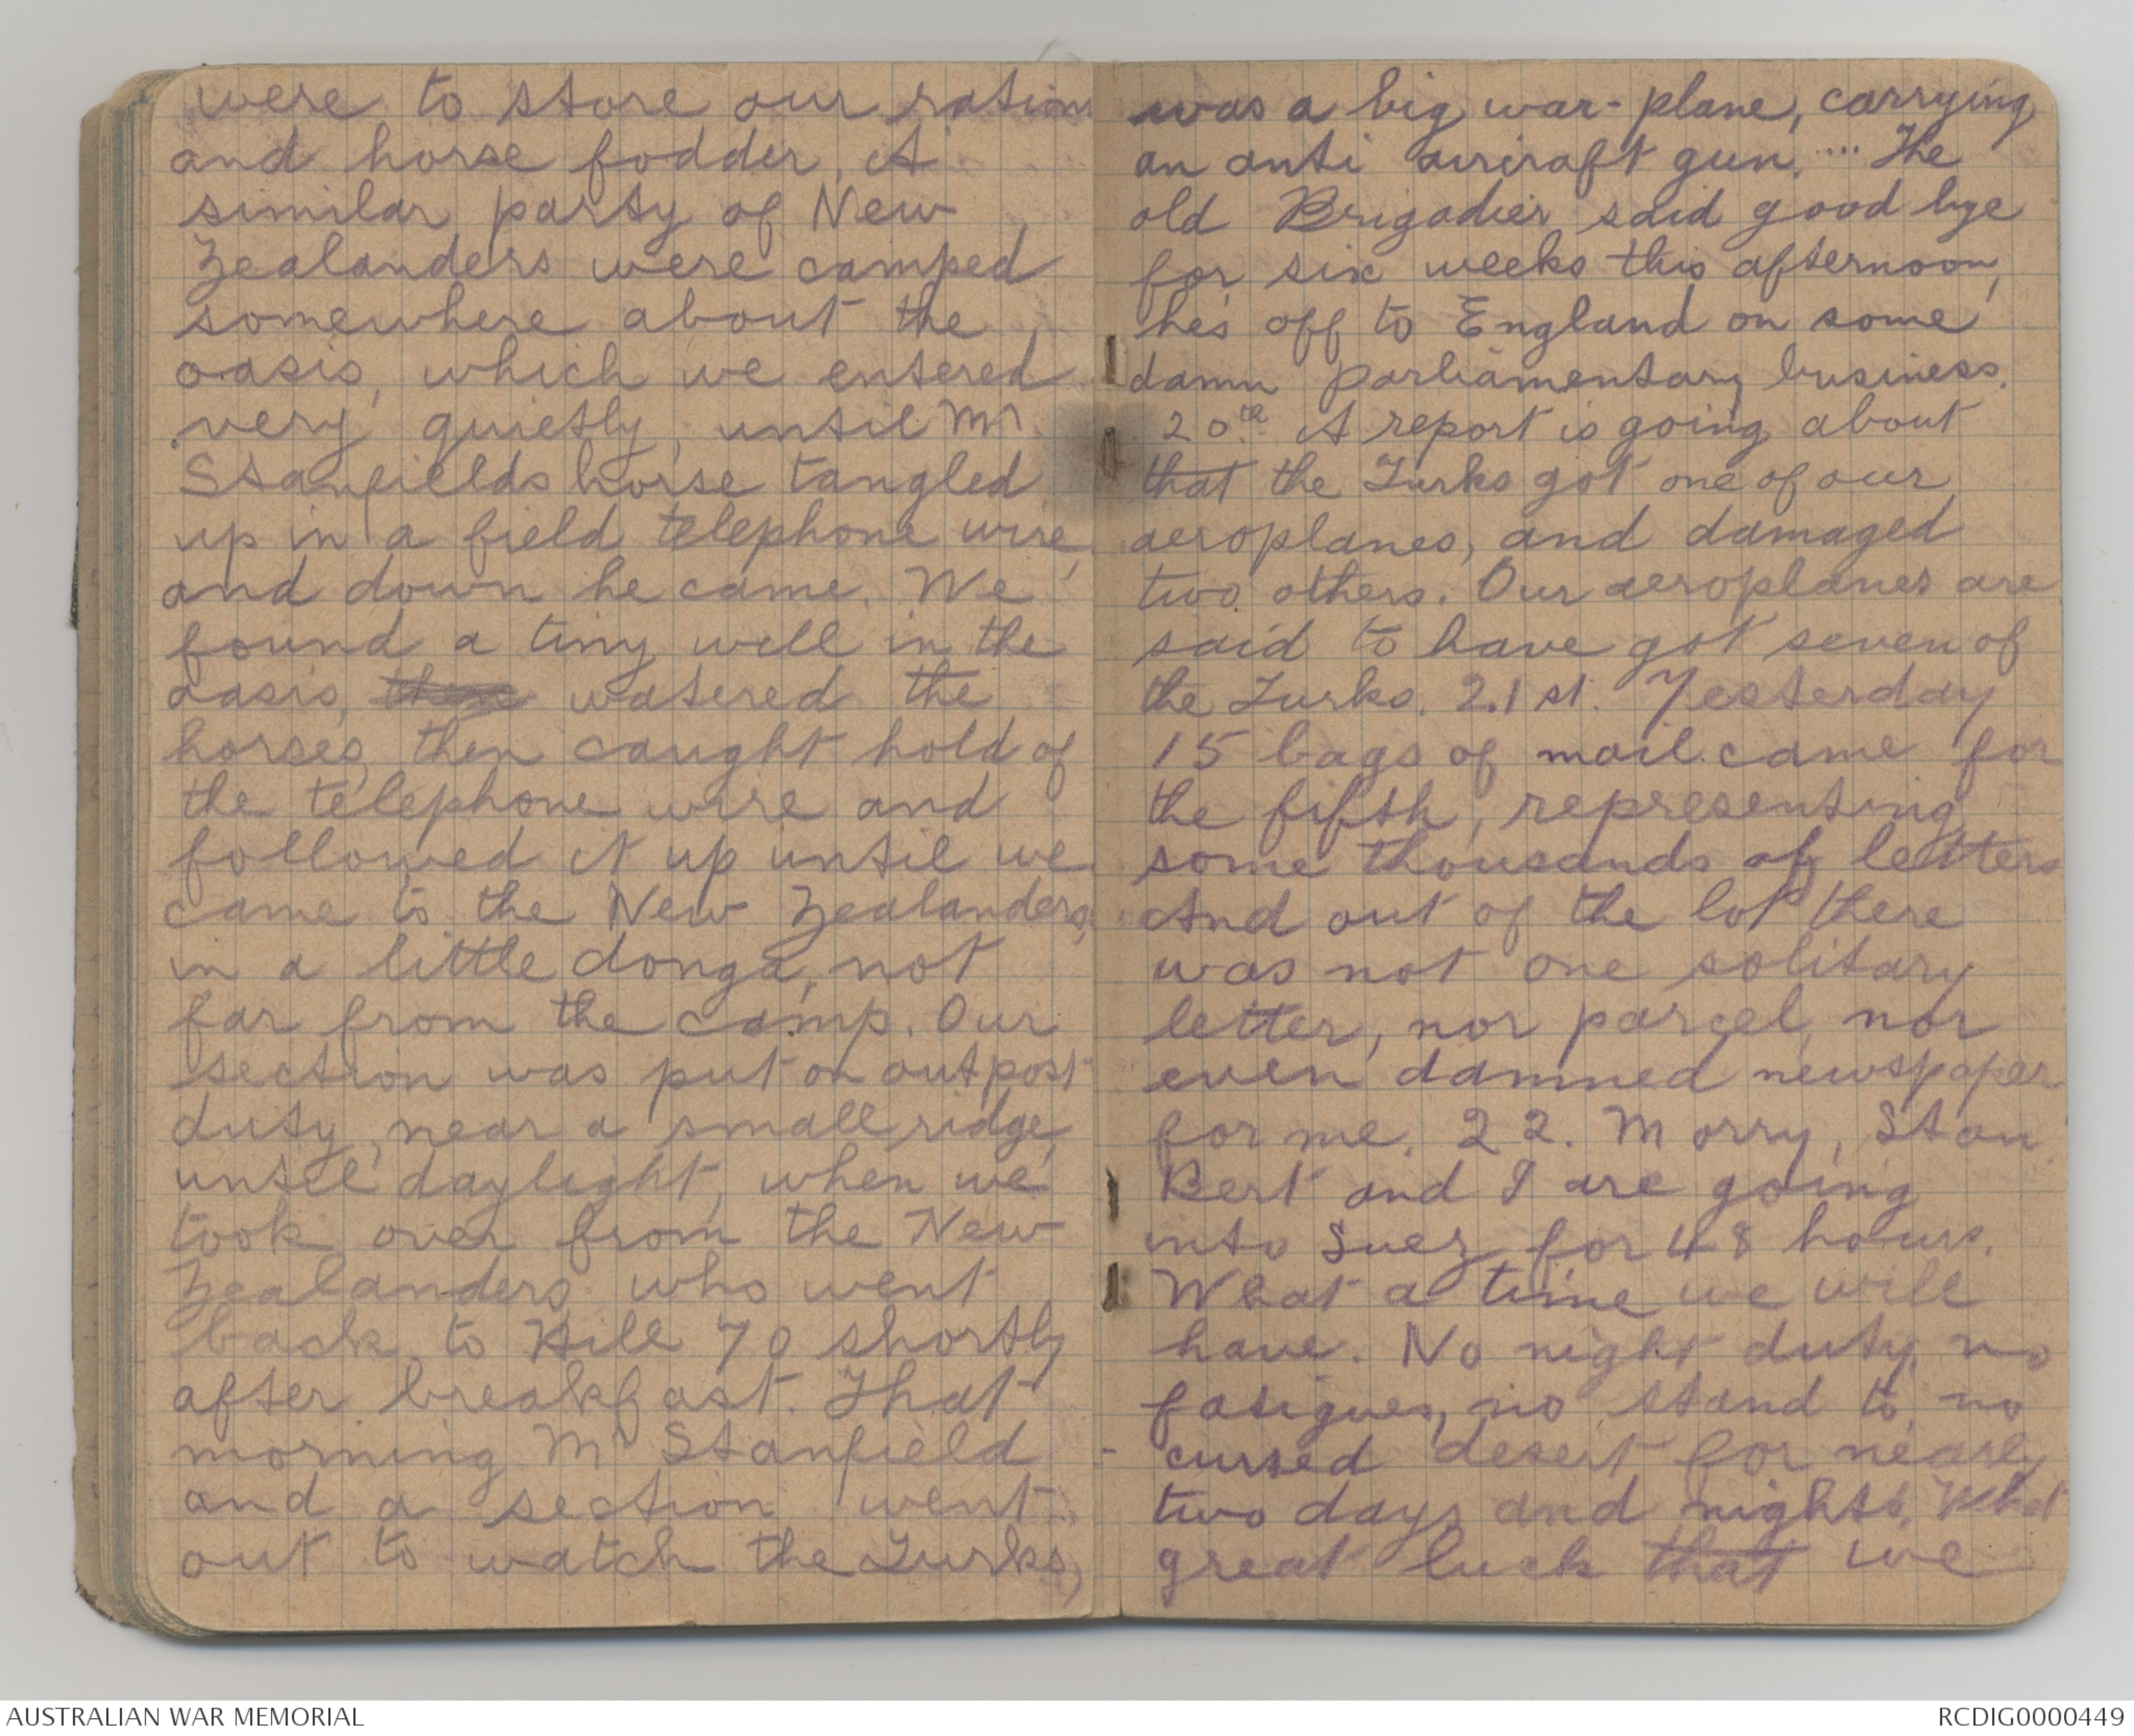 were to store our rations
and horse fodder. A
similar party of New
Zealanders were camped
somewhere about the
oasis, which we entered
very quietly, until Mr
Stanfields horse tangled
up in a field telephone wire,
and down he came. We
found a tiny well in the
oasis, then watered the
horses, then caught hold of
the telephone wire and
followed it up until we
came to the New Zealanders,
in a little donga, not
far from the camp. Our
section was put on outpost
duty, near a small ridge,
until daylight, when we
took over from the New
Zealanders who went
back to Hill 70 shortly
after breakfast. That
morning Mr Stanfield
and a section went
out to watch the Turks,
was a big war-plane, carrying
an anti aircraft gun. ... The
old Brigadier said good bye
for six weeks this afternoon,
hes off to England on some
damn parliamentary business.
20th A report is going about
that the Turks got one of our
aeroplanes, and damaged
two others. Our aeroplanes are
said to have got seven of
the Turks. 21st. Yesterday
15 bags of mail came for
the fifth, representing
some thousands of letters
And out of the lot there
was not one solitary
letter, nor parcel, nor
even damned newspaper
for me. 22. Morry, Stan
Bert and I are going
into Suez for 48 hours.
What a time we will
have. No night duty, no
fatigues, no stand to, no
cursed desert for nearly
two days and nights. What
great luck that we
AUSTRALIAN WAR MEMORIAL
RCDIG0000449